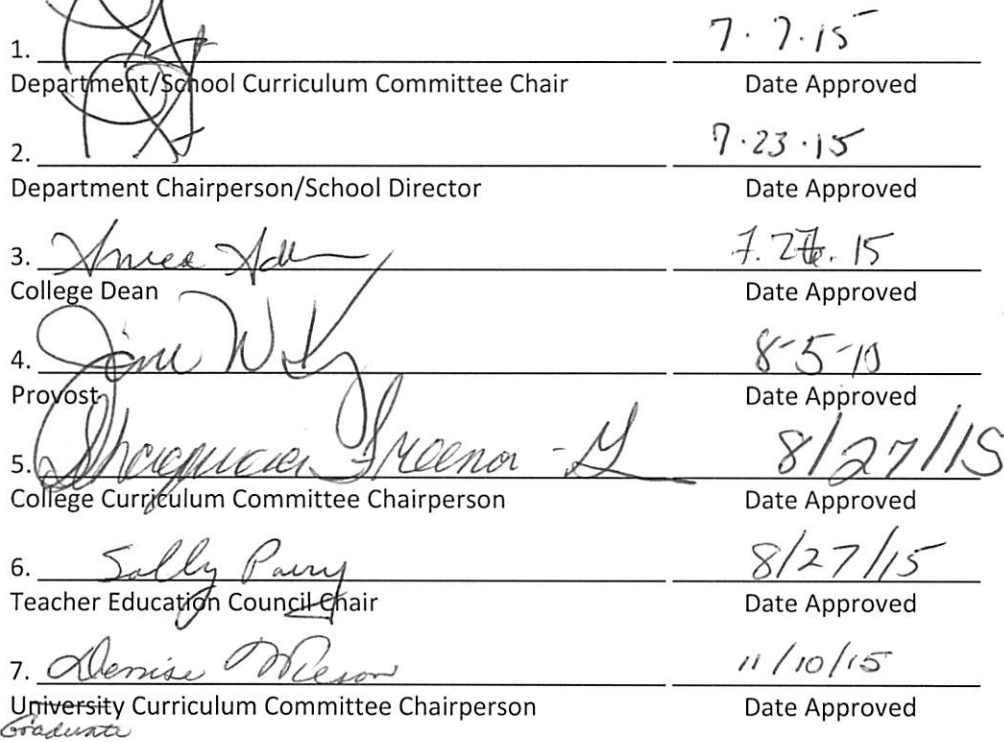 1. 7.7.15
Department/School Curriculum Committee Chair Date Approved
2. 7.23.15
Department Chairperson/School Director Date Approved
3. 15
College Dean Date Approved
4. 8-5-
Provost Date Approved
5. 8/27/15
College Curriculum Committee Chairperson Date Approved
6. Sally Parry 8/27/15
Teacher Education Council Chair Date Approved
7. Denise Wilson 11/10/15
University Curriculum Committee Chairperson Date Approved
Graduate